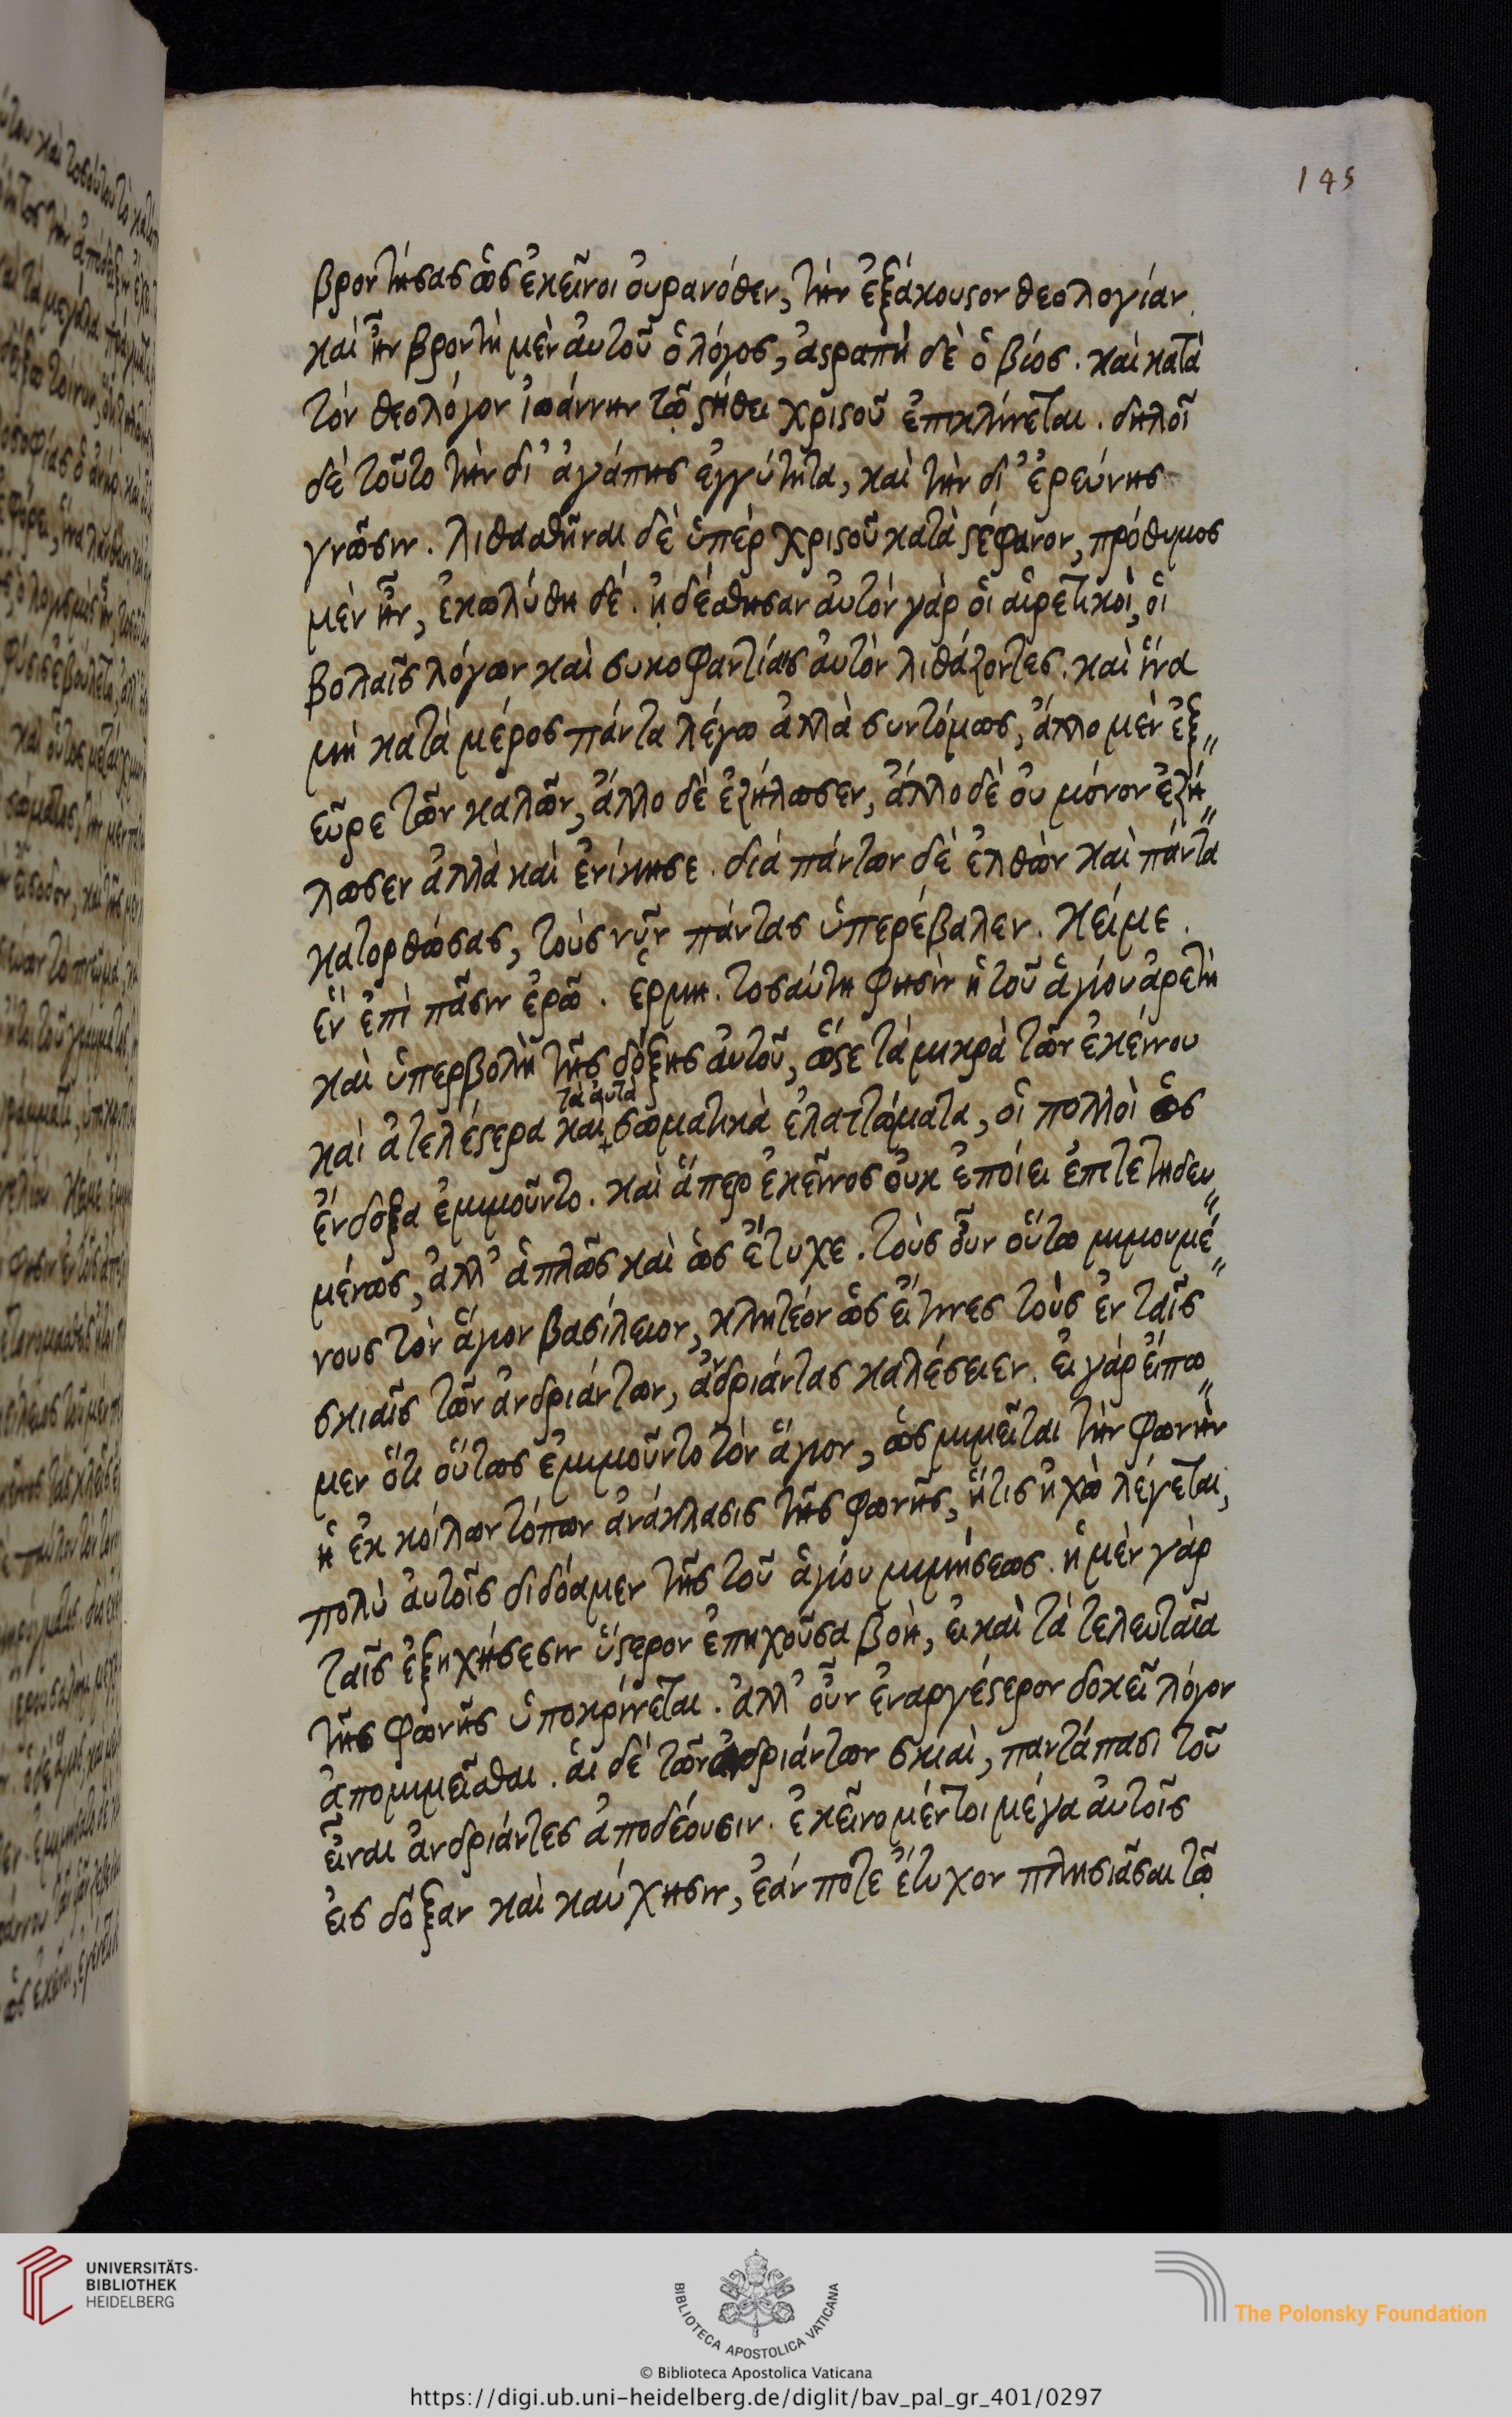 145
βροντήσας ὡς ἐκεῖνοι οὐρανόθεν, τὴν ἐξάκουστον θεολογίαν.
καὶ ἦν βροντὴ μὲν ἀυτοῦ ὁ λόγος, ἀστραπὴ δὲ ὁ βίος. καὶ κατὰ
τὸν θεολόγον ἰωάννην τῷ στήθει χριστοῦ ἐπικλίνεται. δηλοῖ
δὲ τοῦτο τὴν δι' ἀγάπης ἐγγύτητα, καὶ τὴν δι' ἐρεύνης
γνῶσιν. λιθασθῆναι δὲ ὑπὲρ χριστοῦ κατὰ στέφανον, πρόθυμος
μὲν ἦν, ἐκωλύθη δέ. ᾐδέσθησαν ἀυτὸν γὰρ ὁι ἁιρετικοὶ, ὁι
βολαῖς λόγων καὶ συκοφαντίαις ἀυτὸν λιθάζοντες. καὶ ἵνα
μὴ κατὰ μέρος πάντα λέγω ἀλλὰ συντόμως, ἄλλο μὲν ἐξ〃
εῦρε τῶν καλῶν, ἄλλο δὲ ἐζήλωσεν, ἄλλο δὲ ὀυ μόνον ἐζή〃
λωσεν ἀλλὰ καὶ ἐνίκησε. διὰ πάντων δὲ ἐλθὼν καὶ πάντα
κατορθώσας, τοὺς νῦν πάντας ὑπερέβαλεν. κείμε.
ἓν ἐπὶ πᾶσιν ἐρῶ. ἑρμη. τοσαύτη φησὶν ἡ τοῦ ἁγίου ἀρετὴ
καὶ ὑπερβολὴ τῆς δόξης ἀυτοῦ, ὥστε τὰ μικρὰ τῶν ἐκείνου
τὰ ἀυτὰ
καὶ ἀτελέστερα καὶ + σωματικὰ ἐλαττώματα, ὁι πολλοὶ ὡς
ἔνδοξα ἐμιμοῦντο. καὶ ἅπερ ἐκεῖνος ὀυκ ἐποίει ἐπιτετηδευ〃
μένως, ἀλλ' ἁπλῶς καὶ ὡς ἔτυχε. τοὺς ὀῦν ὅυτω μιμουμέ〃
νους τὸν ἅγιον βασίλειον, κλητέον ὡς ἔι τινες τοὺς ἐν ταῖς
σκιαῖς τῶν ἀνδριάντων, ἀνδριάντας καλέσειεν. ἐι γὰρ ἔιπω〃
μεν ὅτι ὅυτως ἐμιμοῦντο τὸν ἅγιον, ὡς μιμεῖται τὴν φωνὴν
ἡ ἐκ κοίλων τόπων ἀνάκλασις τῆς φωνῆς, ἥτις ἠχὼ λέγεται,
πολὺ ἀυτοῖς διδόαμεν τῆς τοῦ ἁγίου μιμήσεως. ἡ μὲν γὰρ
ταῖς ἐξηχήσεσιν ὕστερον ἐπηχοῦσα βοὴ, ἐι καὶ τὰ τελευταῖα
τῆς φωνῆς ὑποκρίνεται. ἀλλ' ὀῦν ἐναργέστερον δοκεῖ λόγον
ἀπομιμεῖσθαι. ἁι δὲ τῶν ἀνδριάντων σκιαὶ, παντάπασι τοῦ
ἐῖναι ἀνδριάντες ἀποδέουσιν. ἐκεῖνο μέντοι μέγα ἀυτοῖς
ἐις δόξαν καὶ καύχησιν, ἐάν ποτε ἔτυχον πλησιᾶσαι τῷ
UNIVERSITÄTS-
BIBLIOTHEK
HEIDELBERG
BIBLIOTECA APOSTOLICA VATICANA
The Polonsky Foundation
© Biblioteca Apostolica Vaticana
https://digi.ub.uni-heidelberg.de/diglit/bav_pal_gr_401/0297